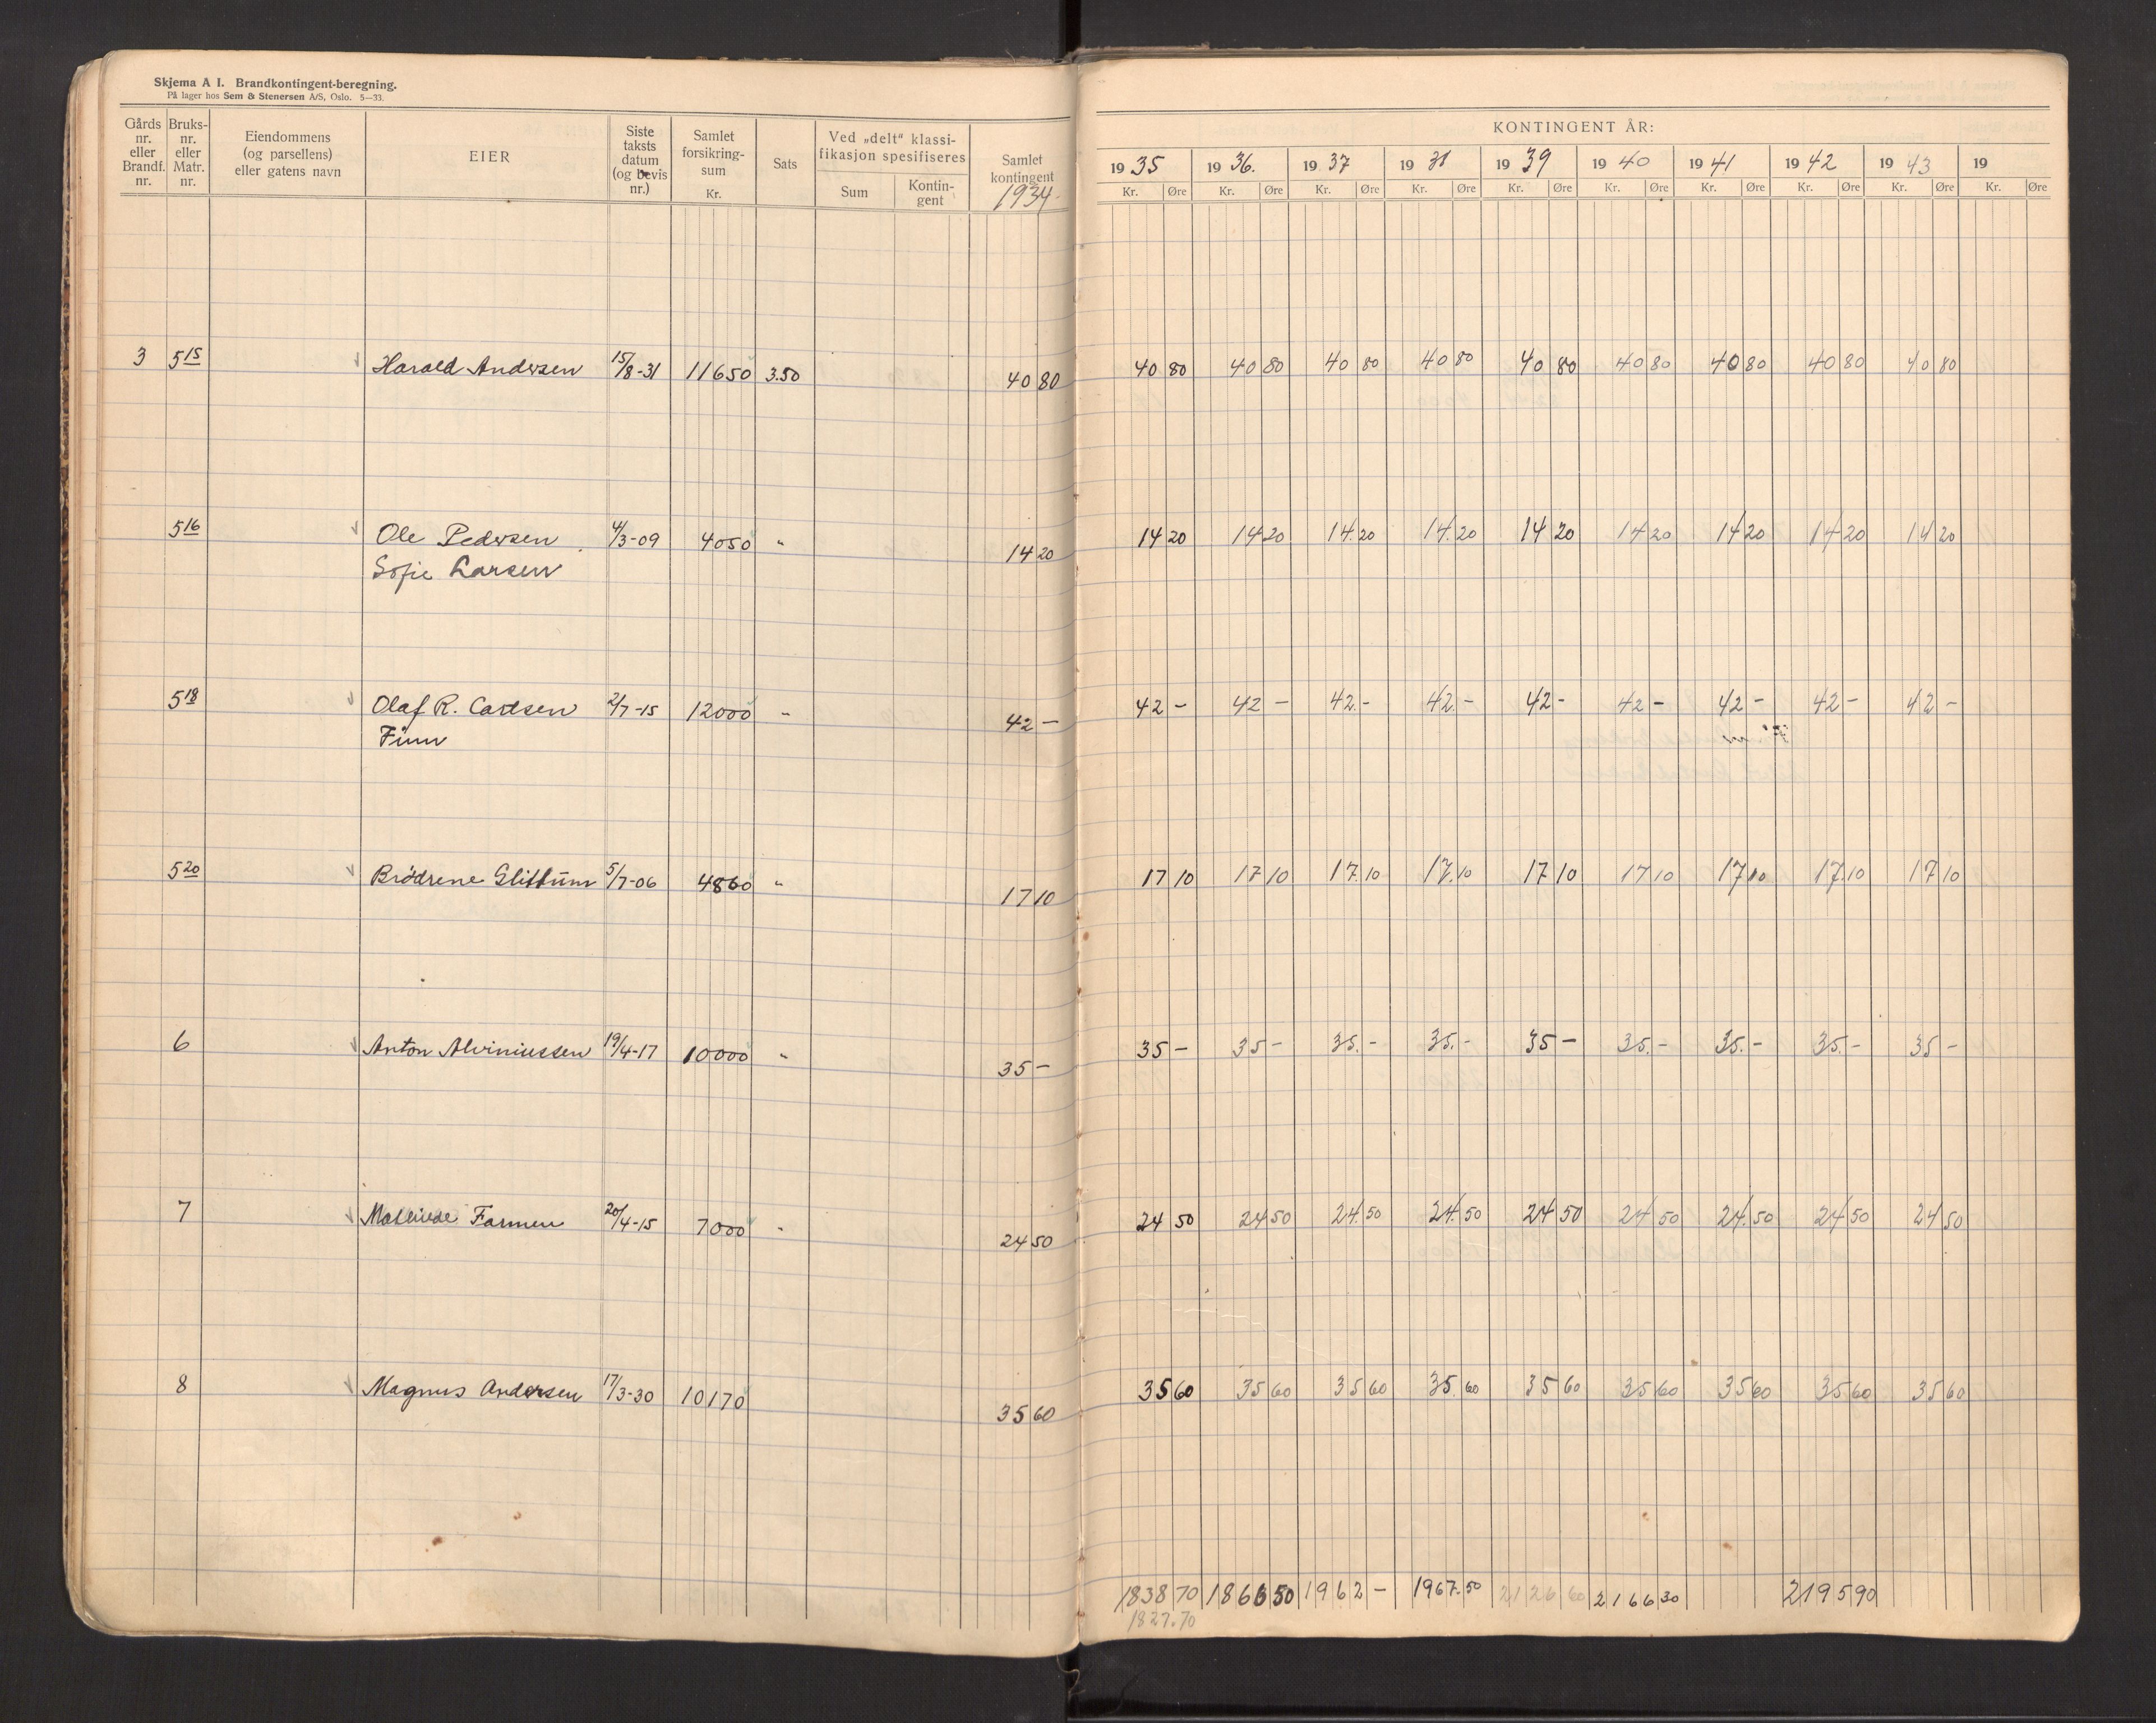 Skjema A I. Brandkontingent-beregning.
På lager hos Sem & Stenersen A/S, Oslo. 5—33.
Gårds nr. eller Brandf. nr.
Bruks- nr. eller Matr. nr.
Eiendommens (og parsellens) eller gatens navn
EIER
Siste taksts datum (og bevis nr.)
Samlet forsikring- sum Kr.
Sats
Ved „delt" klassi- fikasjon spesifiseres
Sum
Kontin- gent
Samlet kontingent 1934
KONTINGENT ÅR:
1935 1936. 1937 1938 1939 1940 1941 1942 1943 19
Kr. Øre Kr. Øre Kr. Øre Kr. Øre Kr. Øre Kr. Øre Kr. Øre Kr. Øre Kr. Øre Kr. Øre
3 5 15 Harald Andersen 15/8-31 11650 3.50 40 80 40 80 40 80 40 80 40 80 40 80 40 80 40 80 40 80 40 80
5 16 Ole Pedersen 4/3-09 4050 " 14 20 14 20 14 20 14.20 14.20 14 20 14 20 14 20 14 20 14 20
Sofie Larsen
5 18 Olaf R. Carlsen 2/7-15 12000 " 42 — 42 - 42 - 42.- 42.- 42 - 42 - 42 - 42 - 42 -
Finn
5 20 Brødrene Glittum 5/7-06 4860 " 17 10 17 10 17 10 17.10 17.10 17 10 17 10 17 10 17.10 17 10
6 Anton Alviniussen 19/4-17 10000 " 35 — 35 — 35 - 35.- 35.- 35 — 35.- 35.- 35.- 35 -
7 Farmen 20/4-15 7000 " 24 50 24 50 24 50 24.50 24.50 24 50 24 50 24.50 24 50 24 50
8 Magnus Andersen 17/3-30 10170 35 60 35 60 35 60 35 60 35.60 35 60 35 60 35 60 35 60 35 60
1838 70 1866 50 1962 — 1967.50 2126 60 2166 30 2195 90
1827.70